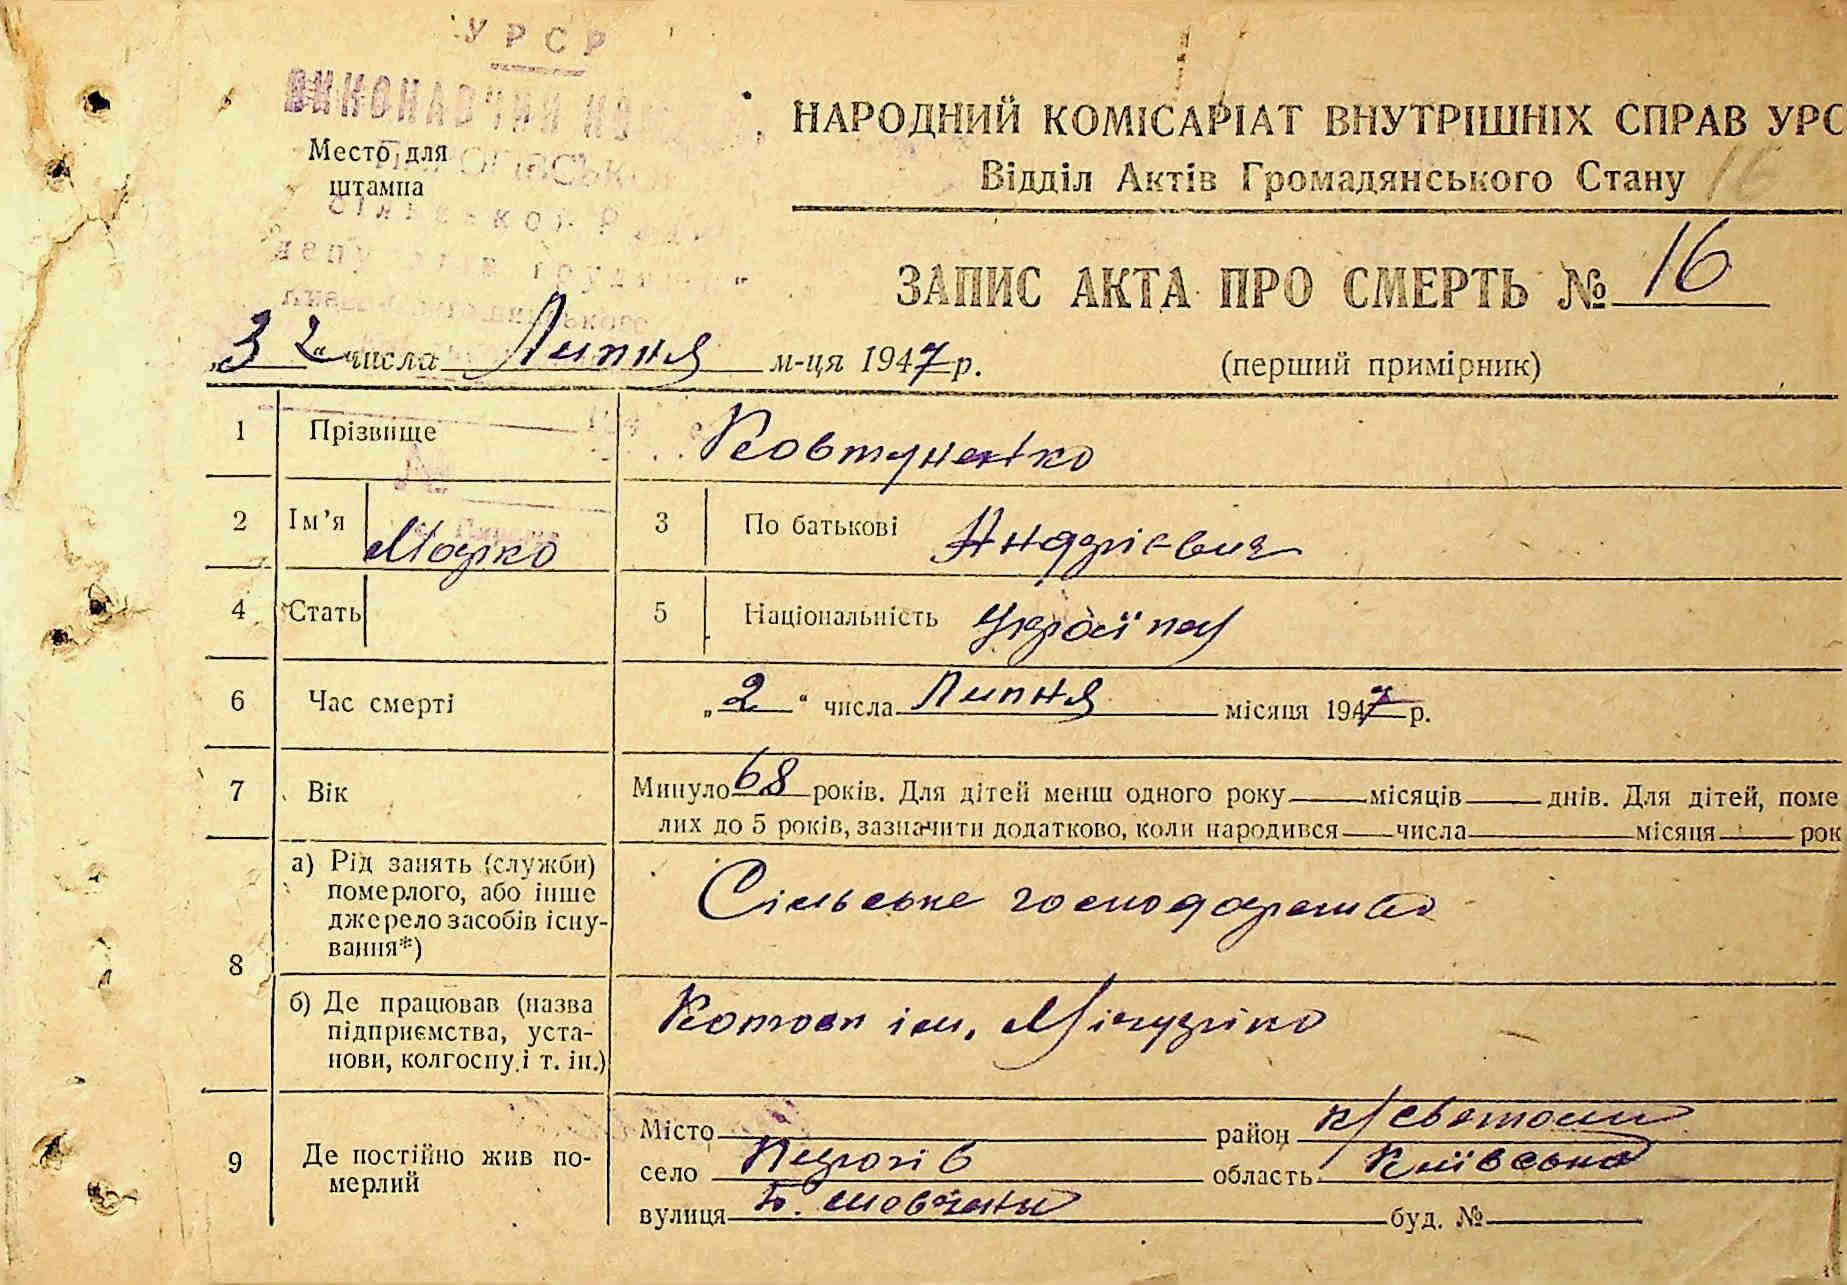 УРСР
ВИКОНАВЧИЙ
Место для
штампа
НАРОДНИЙ КОМІСАРІАТ ВНУТРІШНІХ СПРАВ УРС
Відділ Актів Громадянського Стану 16
ЗАПИС АКТА ПРО СМЕРТЬ № 16
„3 2“ числа Липня м-ця 1947 р. (перший примірник)
1 Прізвище Ковтуненко
2 Ім’я Марко 3 По батькові Андрієвич
4 Стать 5 Національність
6 Час смерті „2“ числа Липня місяця 1947 р.
7 Вік Минуло 68 років. Для дітей менш одного року місяців днів. Для дітей, поме
лих до 5 років, зазначити додатково, коли народився числа місяця рок
8 а) Рід занять (служби)
померлого, або інше
джерело засобів існу-
вання*)
Сільське господарство
б) Де працював (назва
підприємства, уста-
нови, колгоспу і т. ін.)
ім. Мічуріна
9 Де постійно жив по-
мерлий
Місто район к/Святош
село Пирогів область Київська
вулиця буд. №